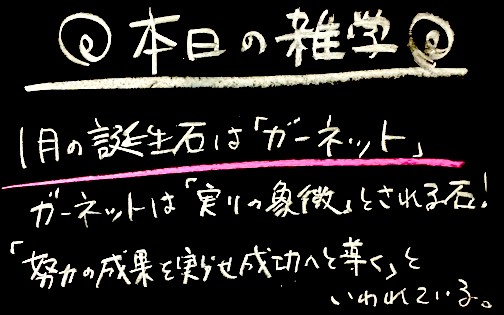 本日の雑学
1月の誕生石は「ガーネット」
ガーネットは「実りの象徴」とされる石!
「努力の成果を実らせ成功へと導く」と
いわれている。